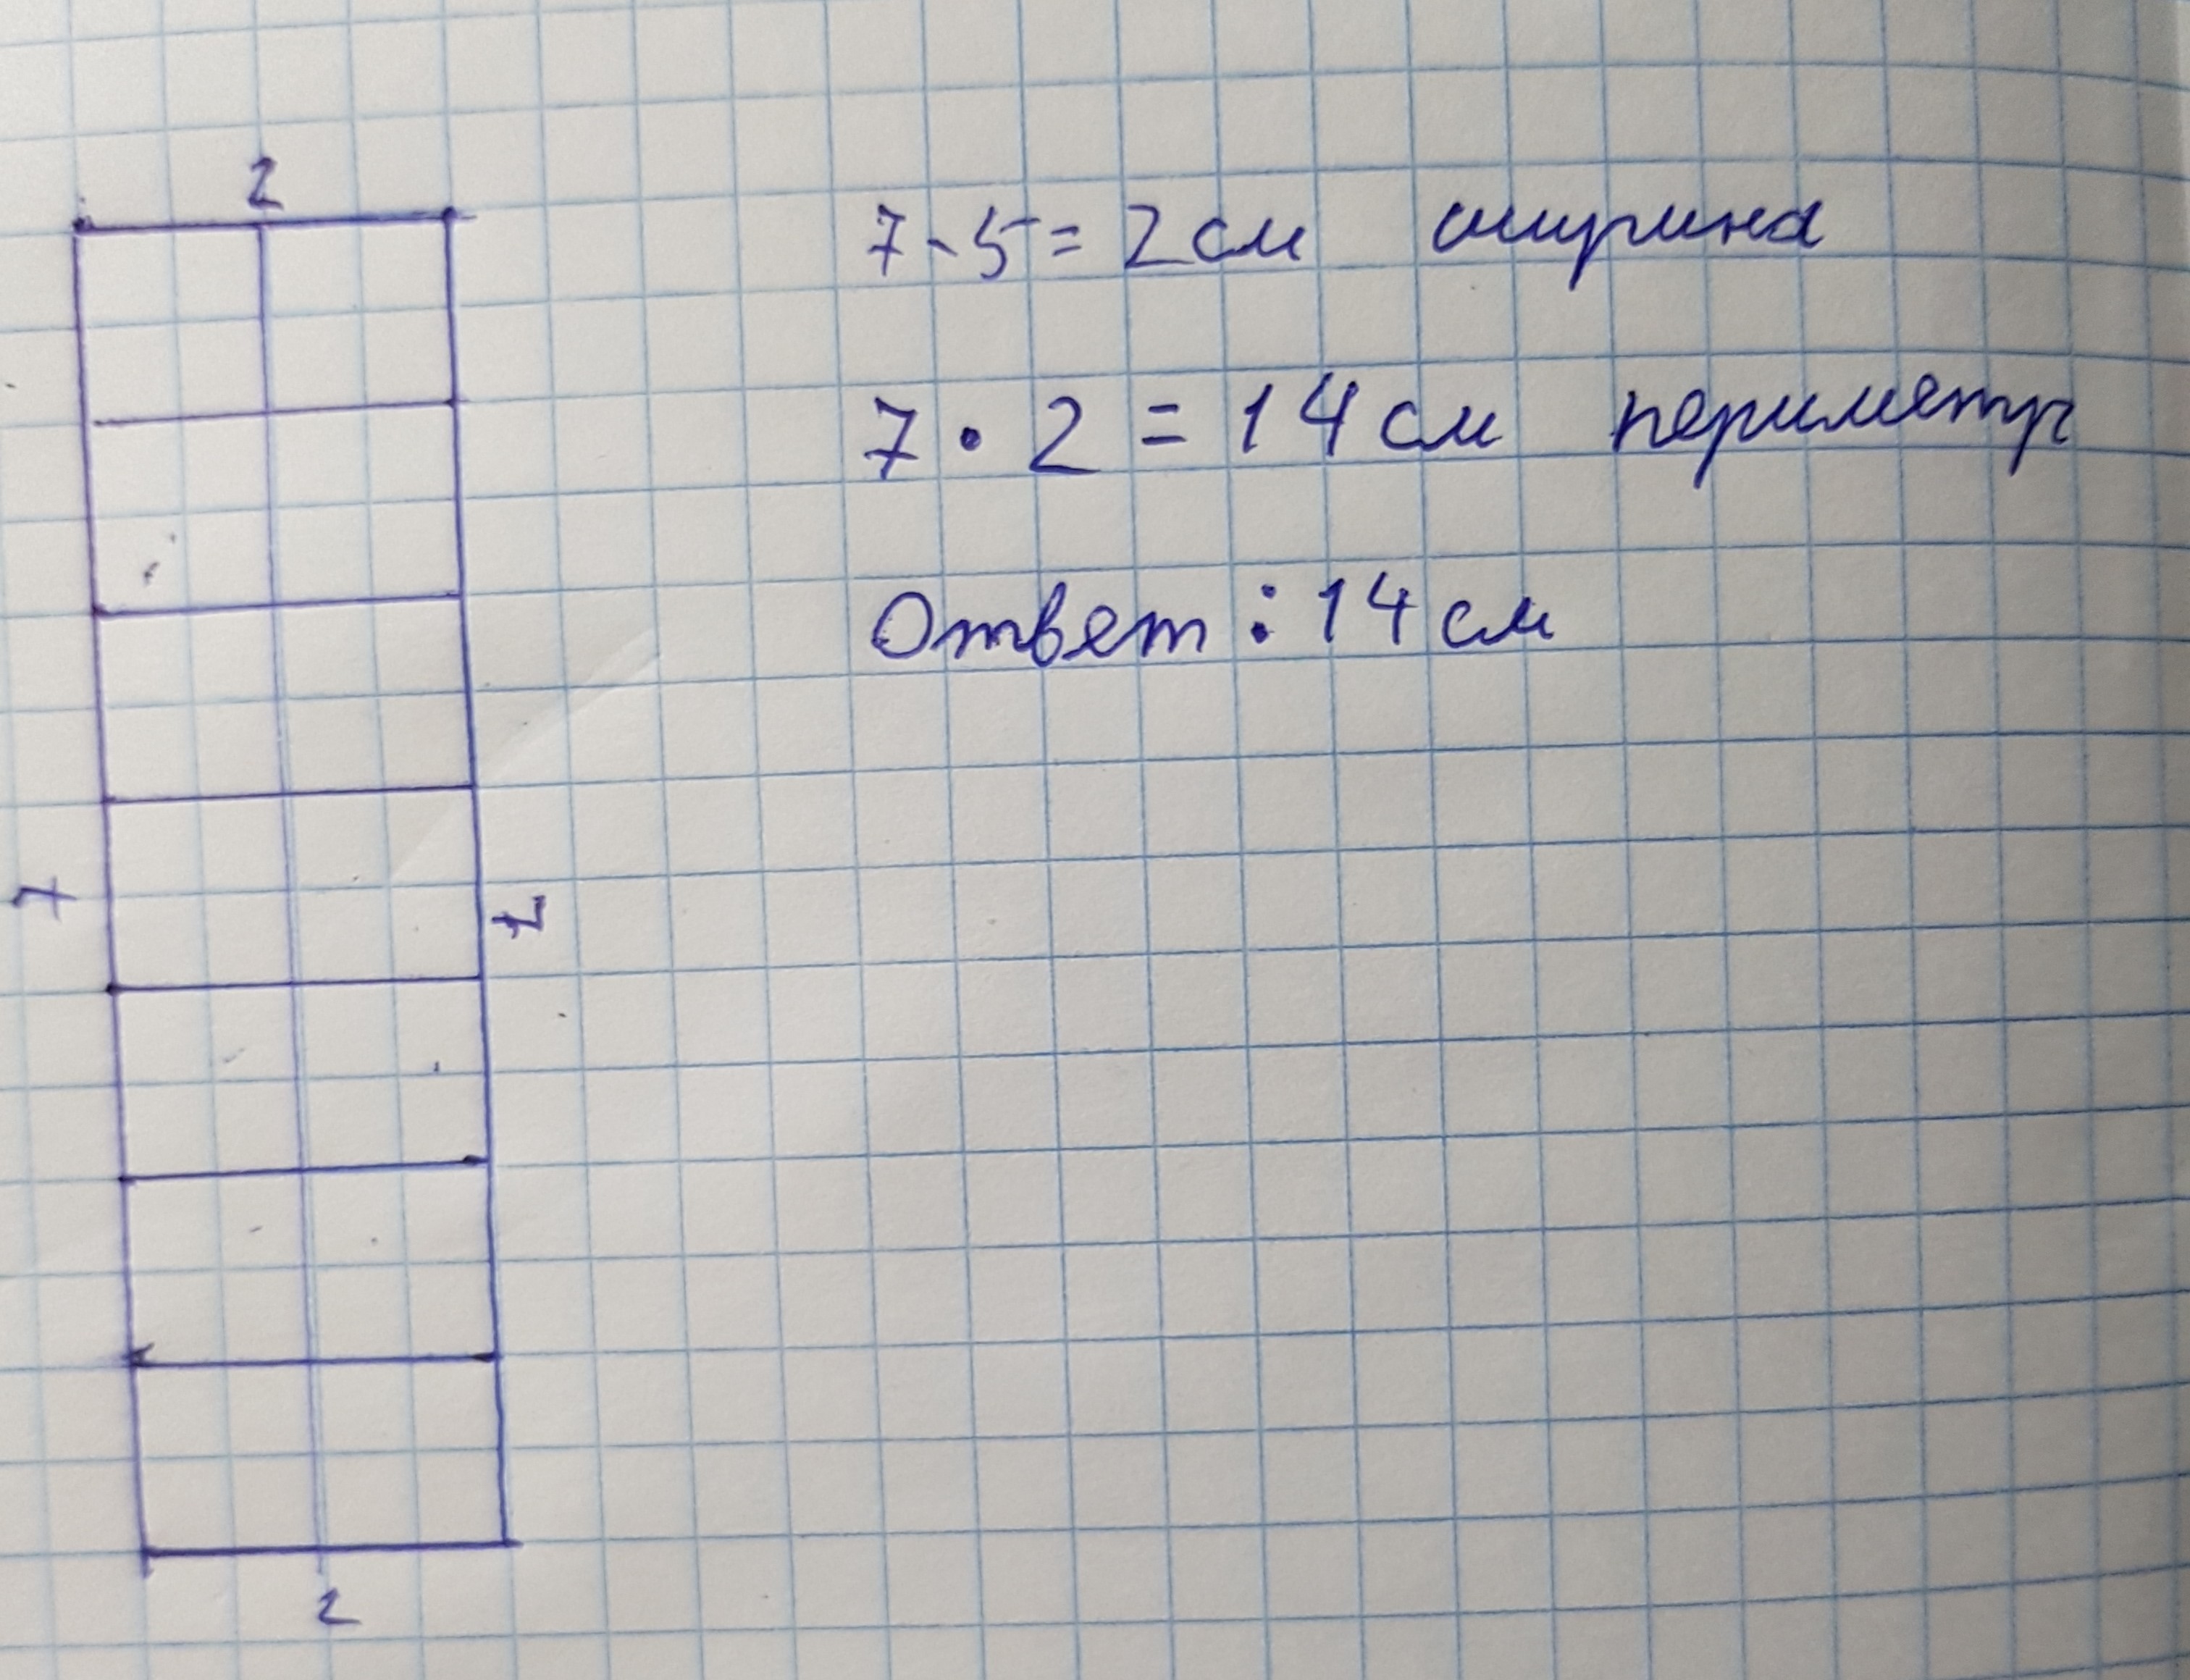 2
7 - 5 = 2 см ширина
7 · 2 = 14 см периметр
Ответ : 14 см
7
7
2